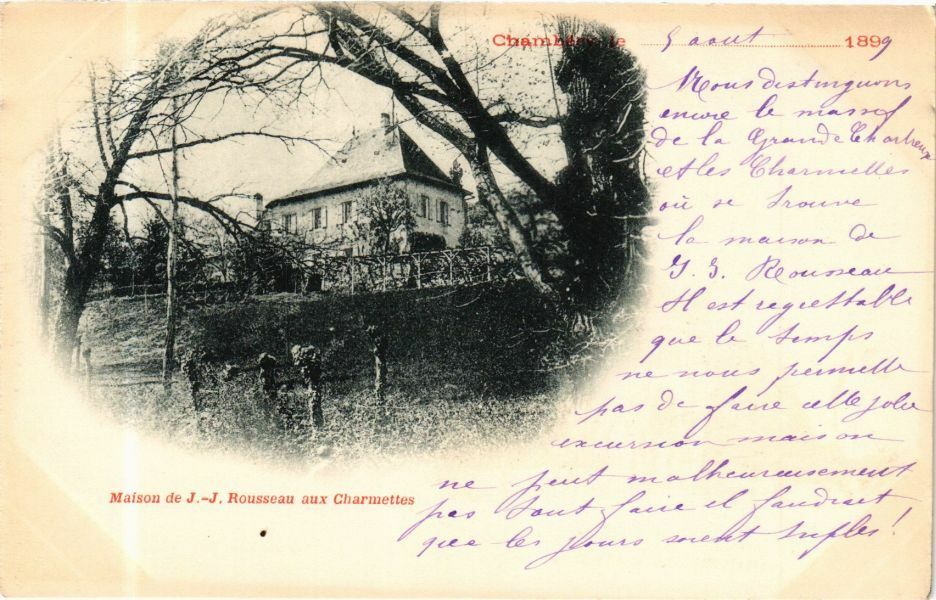 Chambéry, le 5 aout 1899
Nous distinguons
encore le massif
de la Grande Chartreuse
et les Charmettes
où se trouve
la maison de
J. J. Rousseau
Il est regrettable
que le temps
ne nous permette
pas de faire cette jolie
excursion mais on
ne peut malheureusement
pas tout faire il faudrait
que les jours soient triples!
Maison de J.-J. Rousseau aux Charmettes